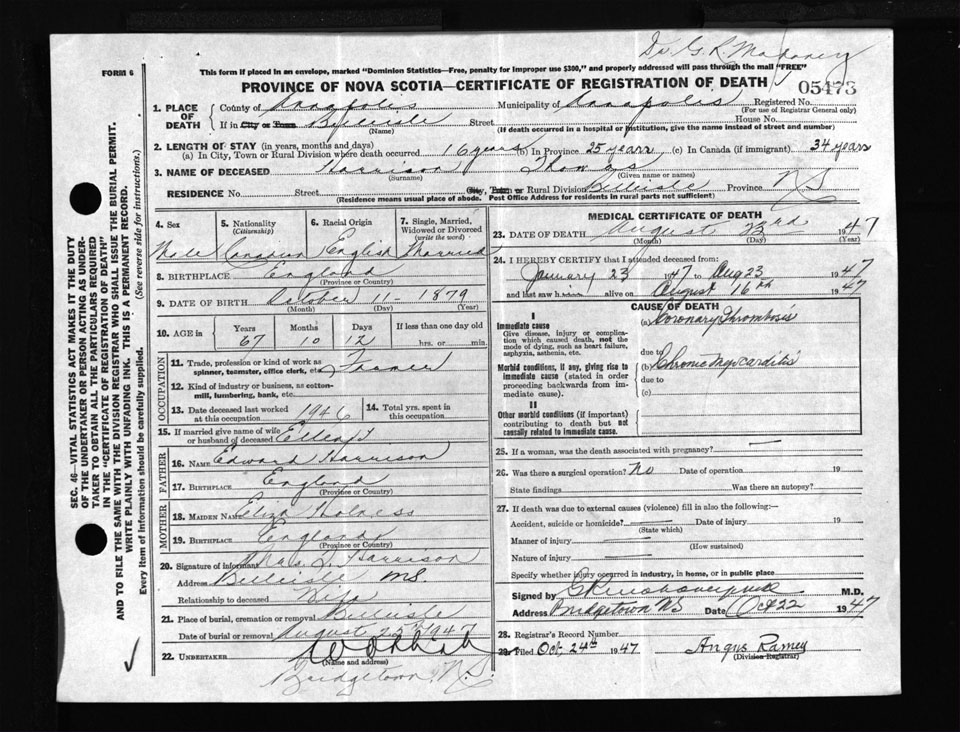 Dr. G. R. Mahaney
FORM 6
This form if placed in an envelope, marked "Dominion Statistics—Free, penalty for improper use $300," and properly addressed will pass through the mail "FREE"
PROVINCE OF NOVA SCOTIA—CERTIFICATE OF REGISTRATION OF DEATH
05473
1. PLACE OF DEATH
County of Annapolis Municipality of Annapolis Registered No.
(For use of Registrar General only)
If in City or Town Belleisle Street House No.
(Name) (If death occurred in a hospital or institution, give the name instead of street and number)
2. LENGTH OF STAY (in years, months and days)
(a) In City, Town or Rural Division where death occurred 16 years (b) In Province 25 years (c) In Canada (if immigrant) 34 years
3. NAME OF DECEASED Harrison Thomas
(Surname) (Given name or names)
RESIDENCE No. Street City, Town or Rural Division Belleisle Province N S
(Residence means usual place of abode. Post Office Address for residents in rural parts not sufficient)
4. Sex
Male
5. Nationality
(Citizenship)
Canadian
6. Racial Origin
English
7. Single, Married, Widowed or Divorced
(write the word)
Married
8. BIRTHPLACE England
(Province or Country)
9. DATE OF BIRTH October 11 - 1879
(Month) (Day) (Year)
10. AGE in Years Months Days If less than one day old
67 10 12 hrs. or min.
OCCUPATION
11. Trade, profession or kind of work as spinner, teamster, office clerk, etc. Farmer
12. Kind of industry or business, as cotton-mill, lumbering, bank, etc.
13. Date deceased last worked at this occupation 1946 14. Total yrs. spent in this occupation
15. If married give name of wife or husband of deceased
FATHER
16. NAME Edward Harrison
17. BIRTHPLACE England
(Province or Country)
MOTHER
18. MAIDEN NAME Eliza
19. BIRTHPLACE England
(Province or Country)
20. Signature of informant Harrison
Address Belleisle NS
Relationship to deceased Wife
21. Place of burial, cremation or removal Belleisle
Date of burial or removal August 1947
22. UNDERTAKER
(Name and address)
Bridgetown, N.S.
MEDICAL CERTIFICATE OF DEATH
23. DATE OF DEATH August 23rd 1947
(Month) (Day) (Year)
24. I HEREBY CERTIFY that I attended deceased from:
January 23 1947 to Aug 23 1947
and last saw him alive on August 16th 1947
CAUSE OF DEATH
I
Immediate cause
Give disease, injury or complication which caused death, not the mode of dying, such as heart failure, asphyxia, asthenia, etc.
(a) Coronary Thrombosis
due to
Morbid conditions, if any, giving rise to immediate cause (stated in order proceeding backwards from immediate cause).
(b) Chronic Myocarditis
due to
(c)
II
Other morbid conditions (if important) contributing to death but not causally related to immediate cause.
25. If a woman, was the death associated with pregnancy? —
26. Was there a surgical operation? No Date of operation 19
State findings Was there an autopsy?
27. If death was due to external causes (violence) fill in also the following:—
Accident, suicide or homicide? Date of injury 19
(State which)
Manner of injury
(How sustained)
Nature of injury
Specify whether injury occurred in industry, in home, or in public place
Signed by M.D.
Address Bridgetown NS Date Oct 22 1947
28. Registrar's Record Number
29. Filed Oct, 24th 1947 Angus Ramey
(Division Registrar)
SEC. 46—VITAL STATISTICS ACT MAKES IT THE DUTY
OF THE UNDERTAKER OR PERSON ACTING AS UNDER-
TAKER TO OBTAIN ALL THE PARTICULARS REQUIRED
IN THE "CERTIFICATE OF REGISTRATION OF DEATH"
AND TO FILE THE SAME WITH THE DIVISION REGISTRAR WHO SHALL ISSUE THE BURIAL PERMIT.
WRITE PLAINLY WITH UNFADING INK. THIS IS A PERMANENT RECORD.
Every item of information should be carefully supplied. (See reverse side for instructions.)